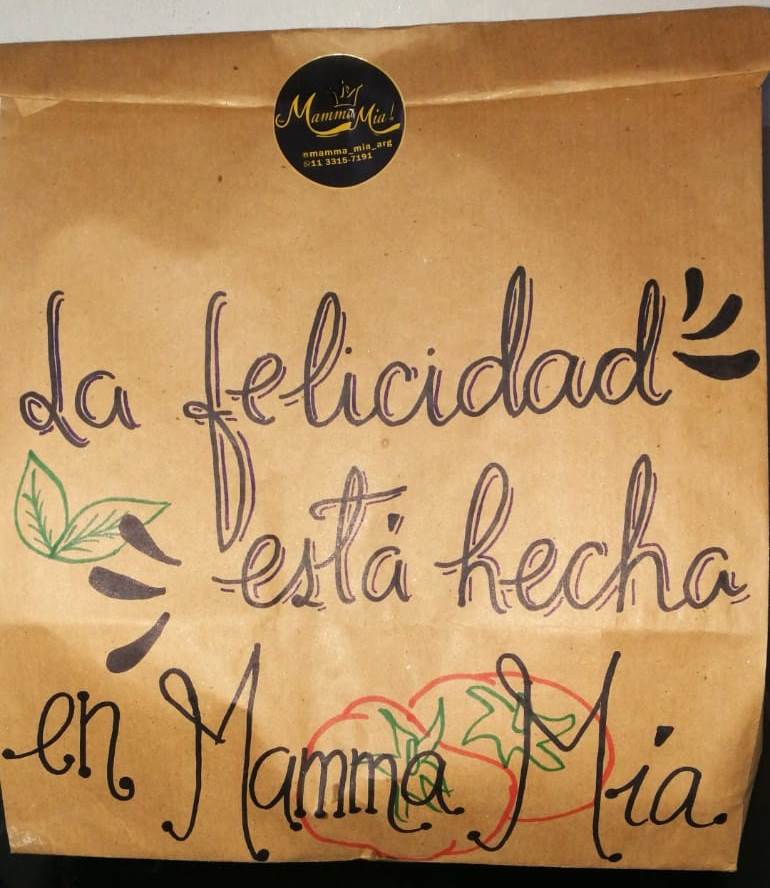 Mamma Mia!
mamma_mia_arg
11 3315-7191
La felicidad
está hecha
en Mamma Mia